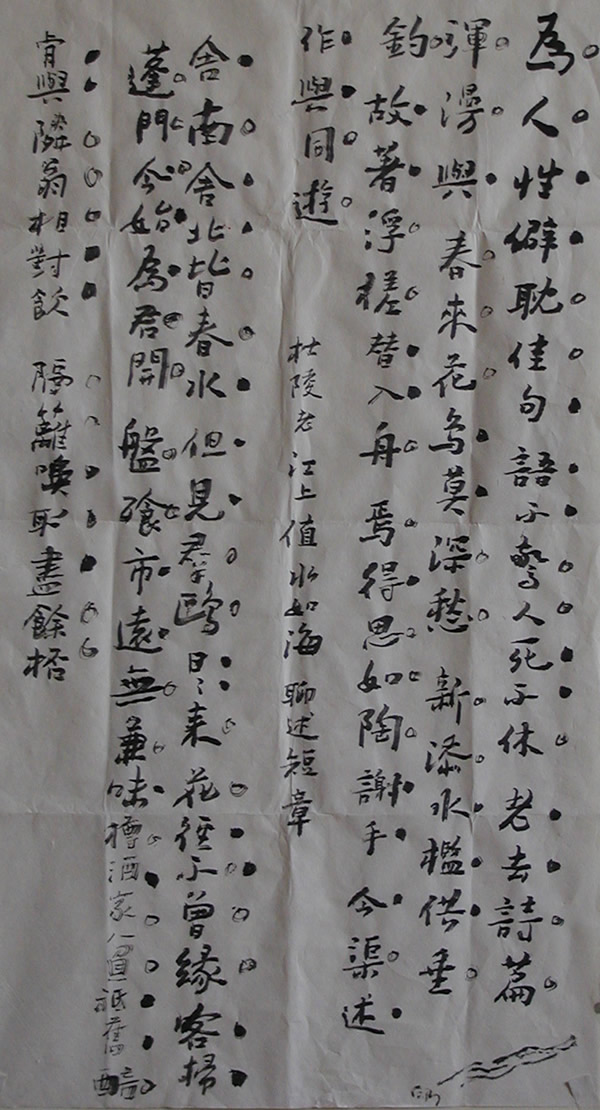 為人性僻耽佳句 語不驚人死不休 老去詩篇
渾漫與 春來花鳥莫深愁 新添水檻供垂
釣 故著浮槎替入舟 焉得思如陶謝手 令渠述
作與同遊
杜陵老江上值水如海聊述短章
舍南舍北皆春水 但見羣鷗日々来 花徑不曾緣客掃
蓬門今始為君開 盤飧市遠無兼味 樽酒家貧祗舊醅
肯與隣翁相對飲 隔籬喚取盡餘桮